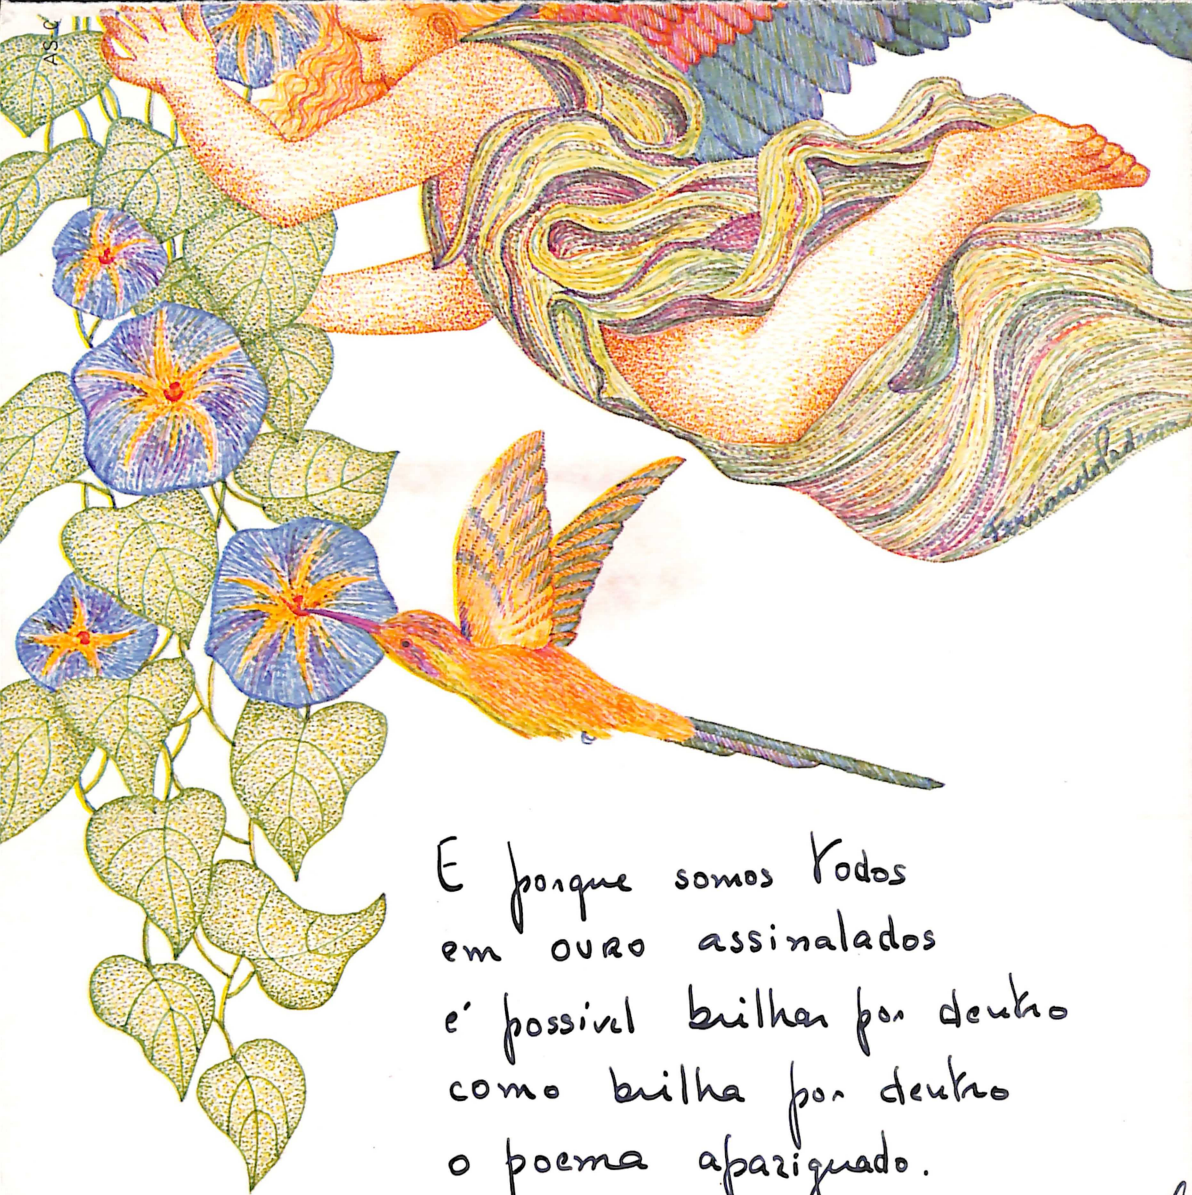 E porque somos todos
em ouro assinalados
é possível brilhar por dentro
como brilha por dentro
o poema apaziguado.